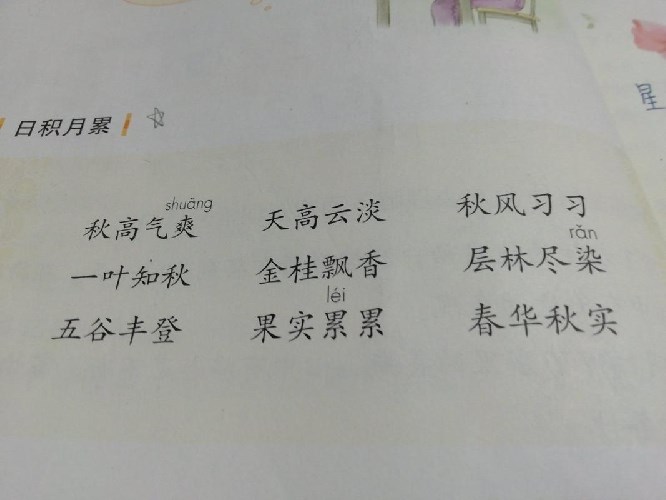 日积月累
shuǎng
秋高气爽 天高云淡 秋风习习
rǎn
一叶知秋 金桂飘香 层林尽染
léi
五谷丰登 果实累累 春华秋实
星